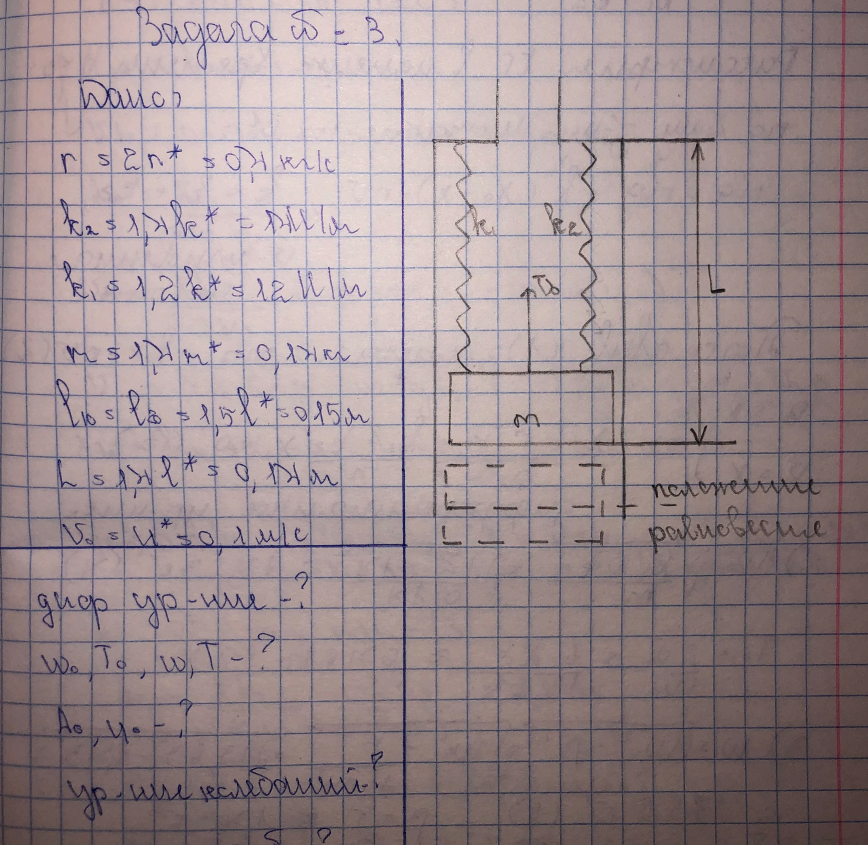 Задача № 3.
Дано:
r = 2r* = 0,1 кг/с
k₂ = 1,7k* = 17 Н/м
k₁ = 1,2k* = 12 Н/м
m = 1,7m* = 0,17 кг
l₁₀ = l₂₀ = 1,5l* = 0,15м
L = 1,7l* = 0,17м
V₀ = u* = 0,1м/с
диф ур-ние - ?
ω₀, T₀, ω, T - ?
A₀, φ₀ - ?
ур-ние колебаний - ?
k₁
k₂
V₀
L
m
положение
равновесие